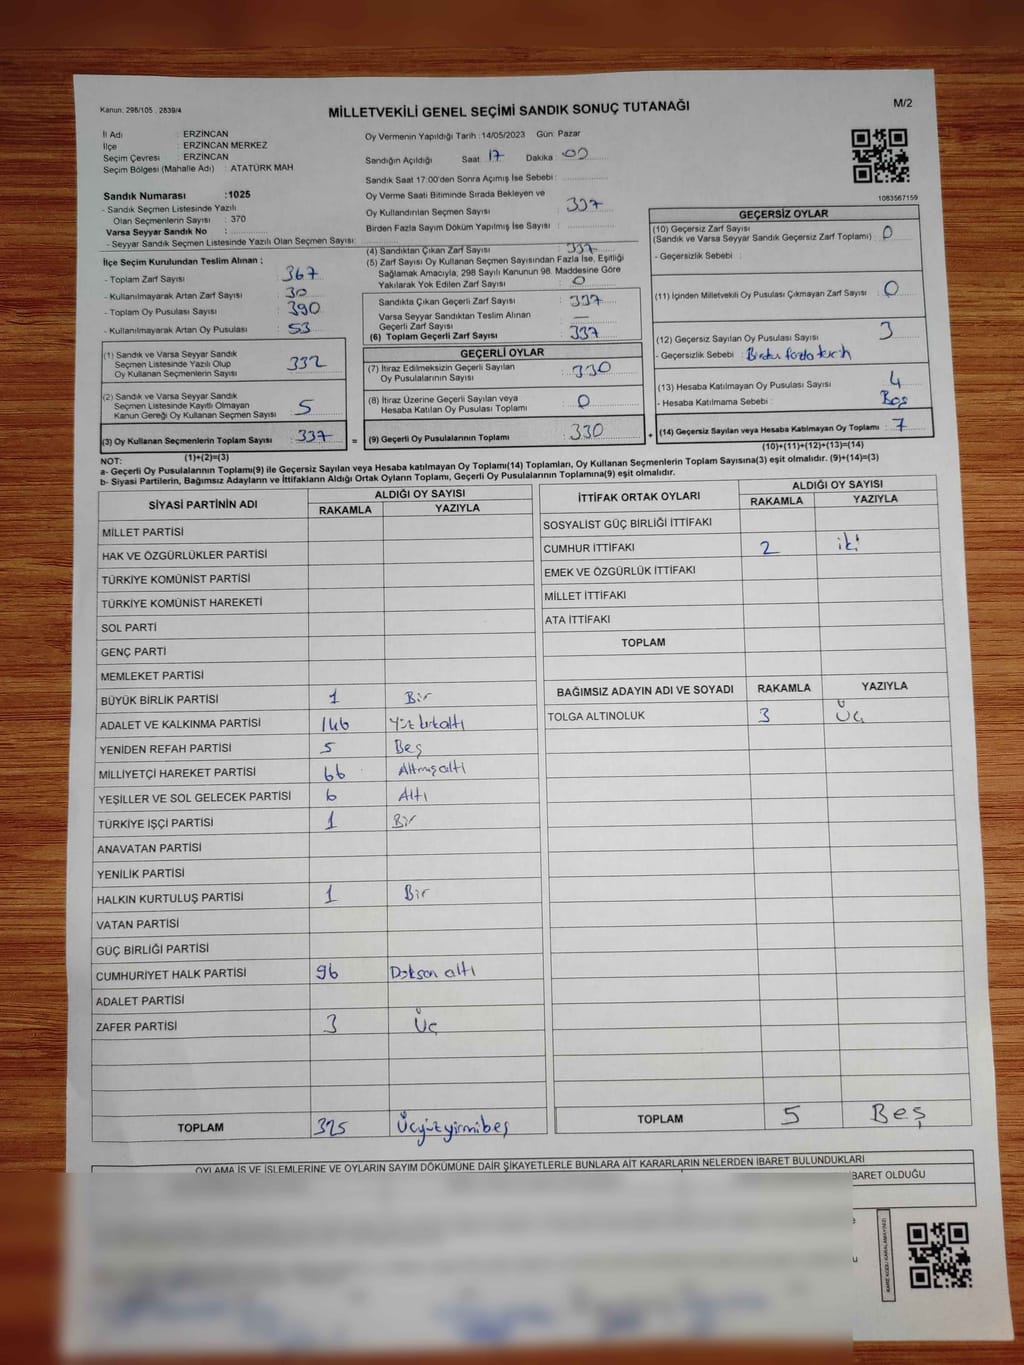 Kanun: 298/105 , 2839/4
MİLLETVEKİLİ GENEL SEÇİMİ SANDIK SONUÇ TUTANAĞI
M/2
İl Adı : ERZİNCAN
İlçe : ERZİNCAN MERKEZ
Seçim Çevresi : ERZİNCAN
Seçim Bölgesi (Mahalle Adı) : ATATÜRK MAH
Oy Vermenin Yapıldığı Tarih :14/05/2023 Gün: Pazar
Sandığın Açıldığı Saat 17 Dakika :00
Sandık Saat 17:00'den Sonra Açımış İse Sebebi:
Sandık Numarası :1025
- Sandık Seçmen Listesinde Yazılı
Olan Seçmenlerin Sayısı : 370
Varsa Seyyar Sandık No :
- Seyyar Sandık Seçmen Listesinde Yazılı Olan Seçmen Sayısı:
Oy Verme Saati Bitiminde Sırada Bekleyen ve
Oy Kullandırılan Seçmen Sayısı : 337
Birden Fazla Sayım Döküm Yapılmış İse Sayısı :
1083567159
İlçe Seçim Kurulundan Teslim Alınan ;
- Toplam Zarf Sayısı : 367
- Kullanılmayarak Artan Zarf Sayısı : 30
- Toplam Oy Pusulası Sayısı : 390
- Kullanılmayarak Artan Oy Pusulası : 53
(1) Sandık ve Varsa Seyyar Sandık
Seçmen Listesinde Yazılı Olup
Oy Kullanan Seçmenlerin Sayısı : 332
(2) Sandık ve Varsa Seyyar Sandık
Seçmen Listesinde Kayıtlı Olmayan
Kanun Gereği Oy Kullanan Seçmen Sayısı : 5
(3) Oy Kullanan Seçmenlerin Toplam Sayısı : 337
(1)+(2)=(3)
(4) Sandıktan Çıkan Zarf Sayısı : 337
(5) Zarf Sayısı Oy Kullanan Seçmen Sayısından Fazla İse, Eşitliği
Sağlamak Amacıyla, 298 Sayılı Kanunun 98. Maddesine Göre
Yakılarak Yok Edilen Zarf Sayısı : 0
Sandıkta Çıkan Geçerli Zarf Sayısı : 337
Varsa Seyyar Sandıktan Teslim Alınan
Geçerli Zarf Sayısı : —
(6) Toplam Geçerli Zarf Sayısı : 337
GEÇERLİ OYLAR
(7) İtiraz Edilmeksizin Geçerli Sayılan
Oy Pusulalarının Sayısı : 330
(8) İtiraz Üzerine Geçerli Sayılan veya
Hesaba Katılan Oy Pusulası Toplamı : 0
= (9) Geçerli Oy Pusulalarının Toplamı : 330
GEÇERSİZ OYLAR
(10) Geçersiz Zarf Sayısı
(Sandık ve Varsa Seyyar Sandık Geçersiz Zarf Toplamı) : 0
- Geçersizlik Sebebi :
(11) İçinden Milletvekili Oy Pusulası Çıkmayan Zarf Sayısı : 0
(12) Geçersiz Sayılan Oy Pusulası Sayısı : 3
- Geçersizlik Sebebi :
(13) Hesaba Katılmayan Oy Pusulası Sayısı : 4
- Hesaba Katılmama Sebebi : Boş
+ (14) Geçersiz Sayılan veya Hesaba Katılmayan Oy Toplamı : 7
(10)+(11)+(12)+(13)=(14)
NOT:
a- Geçerli Oy Pusulalarının Toplamı(9) ile Geçersiz Sayılan veya Hesaba katılmayan Oy Toplamı(14) Toplamları, Oy Kullanan Seçmenlerin Toplam Sayısına(3) eşit olmalıdır. (9)+(14)=(3)
b- Siyasi Partilerin, Bağımsız Adayların ve İttifakların Aldığı Ortak Oyların Toplamı, Geçerli Oy Pusulalarının Toplamına(9) eşit olmalıdır.
SİYASİ PARTİNİN ADI
ALDIĞI OY SAYISI
RAKAMLA YAZIYLA
MİLLET PARTİSİ
HAK VE ÖZGÜRLÜKLER PARTİSİ
TÜRKİYE KOMÜNİST PARTİSİ
TÜRKİYE KOMÜNİST HAREKETİ
SOL PARTİ
GENÇ PARTİ
MEMLEKET PARTİSİ
BÜYÜK BİRLİK PARTİSİ 1 Bir
ADALET VE KALKINMA PARTİSİ 146 Yüz kırkaltı
YENİDEN REFAH PARTİSİ 5 Beş
MİLLİYETÇİ HAREKET PARTİSİ 66 Altmışaltı
YEŞİLLER VE SOL GELECEK PARTİSİ 6 Altı
TÜRKİYE İŞÇİ PARTİSİ 1 Bir
ANAVATAN PARTİSİ
YENİLİK PARTİSİ
HALKIN KURTULUŞ PARTİSİ 1 Bir
VATAN PARTİSİ
GÜÇ BİRLİĞİ PARTİSİ
CUMHURİYET HALK PARTİSİ 96 Doksan altı
ADALET PARTİSİ
ZAFER PARTİSİ 3 Üç
TOPLAM 325 Üçyüzyirmibeş
İTTİFAK ORTAK OYLARI
ALDIĞI OY SAYISI
RAKAMLA YAZIYLA
SOSYALİST GÜÇ BİRLİĞİ İTTİFAKI
CUMHUR İTTİFAKI 2 iki
EMEK VE ÖZGÜRLÜK İTTİFAKI
MİLLET İTTİFAKI
ATA İTTİFAKI
TOPLAM
BAĞIMSIZ ADAYIN ADI VE SOYADI RAKAMLA YAZIYLA
TOLGA ALTINOLUK 3 Üç
TOPLAM 5 Beş
OYLAMA İŞ VE İŞLEMLERİNE VE OYLARIN SAYIM DÖKÜMÜNE DAİR ŞİKAYETLERLE BUNLARA AİT KARARLARIN NELERDEN İBARET BULUNDUKLARI
İBARET OLDUĞU